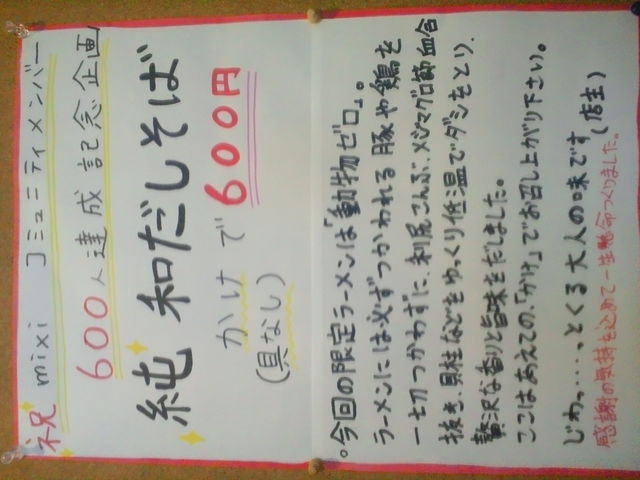 祝 mixi コミュニティメンバー
600人達成記念企画
純 和だしそば
かけで600円
(具なし)
。今回の限定ラーメンは「動物ゼロ」。
ラーメンには必ずつかわれる豚や鶏を
一切つかわずに、利尻こんぶ、メジマグロ節血合
抜き、貝柱などをゆっくり低温でダシをとり、
贅沢な香りと旨味をだしました。
ここはあえての、「かけ」でお召し上がり下さい。
じわっ・・・・っとくる大人の味です
(店主)
感謝の気持を込めて一生懸命つくりました。